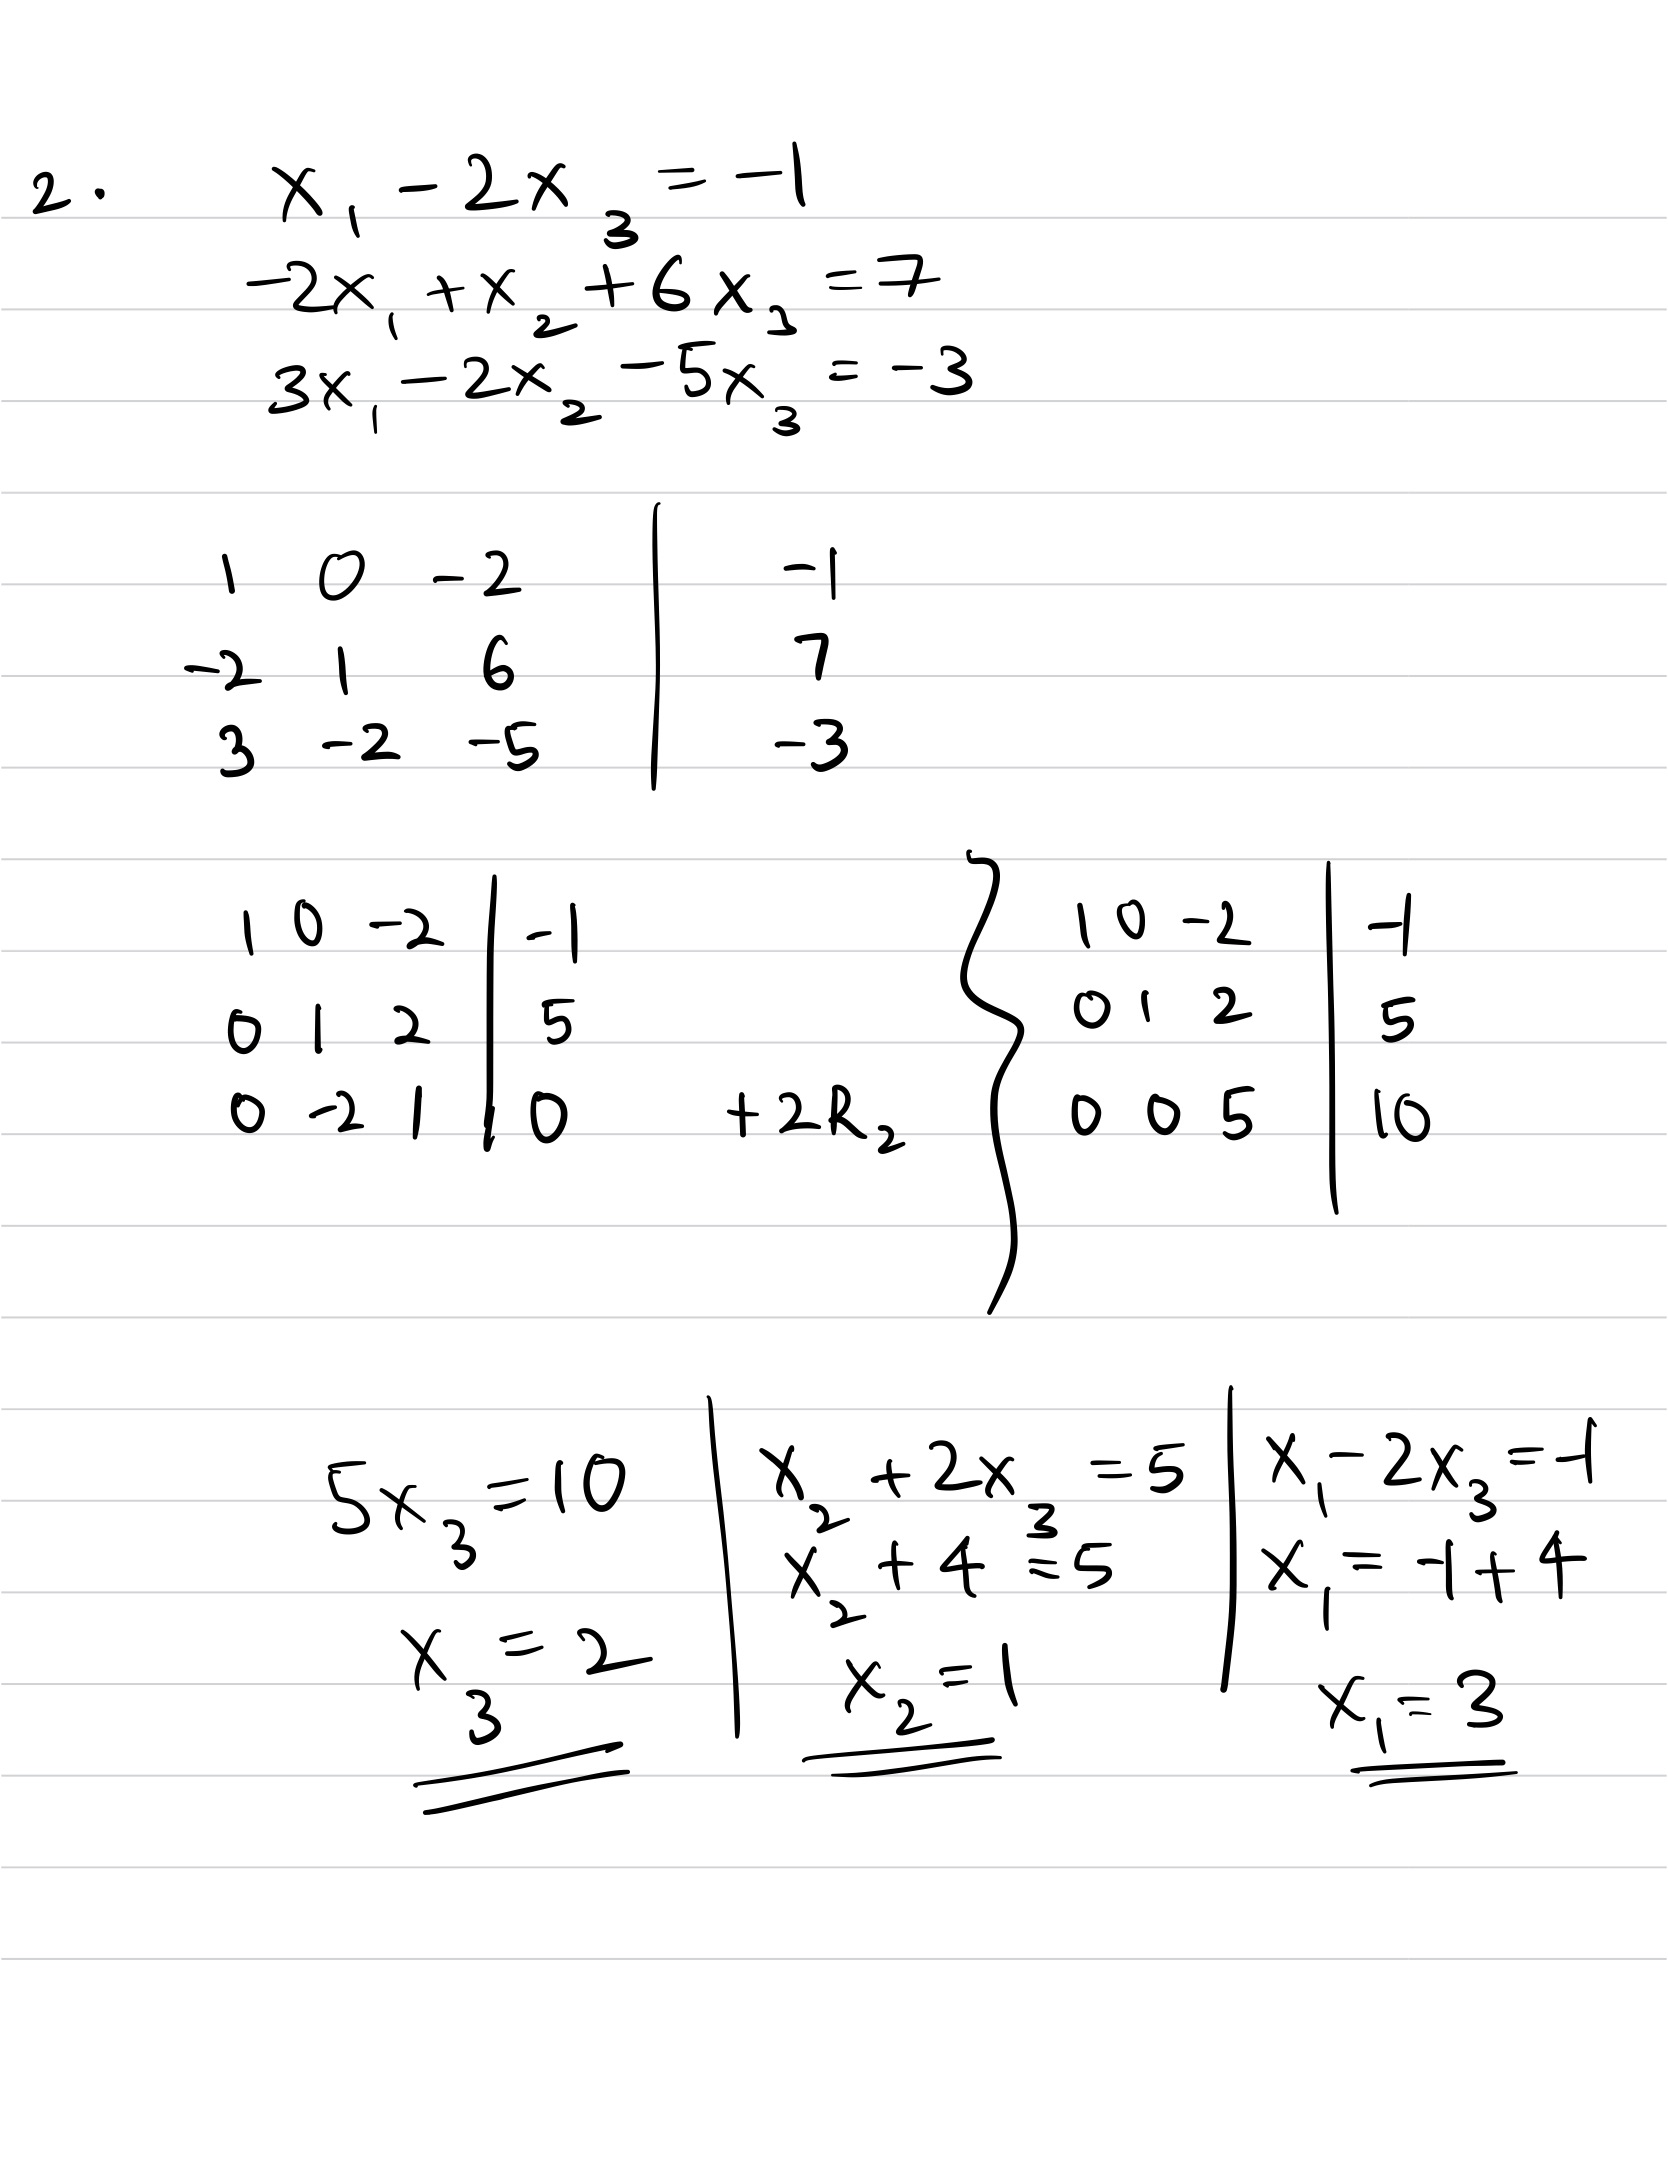 2. x₁ - 2x₃ = -1
-2x₁ + x₂ + 6x₃ = 7
3x₁ - 2x₂ - 5x₃ = -3
1 0 -2 | -1
-2 1 6 | 7
3 -2 -5 | -3
1 0 -2 | -1
0 1 2 | 5
0 -2 1 | 0 +2R₂
1 0 -2 | -1
0 1 2 | 5
0 0 5 | 10
5x₃ = 10
x₃ = 2
x₂ + 2x₃ = 5
x₂ + 4 = 5
x₂ = 1
x₁ - 2x₃ = -1
x₁ = -1 + 4
x₁ = 3